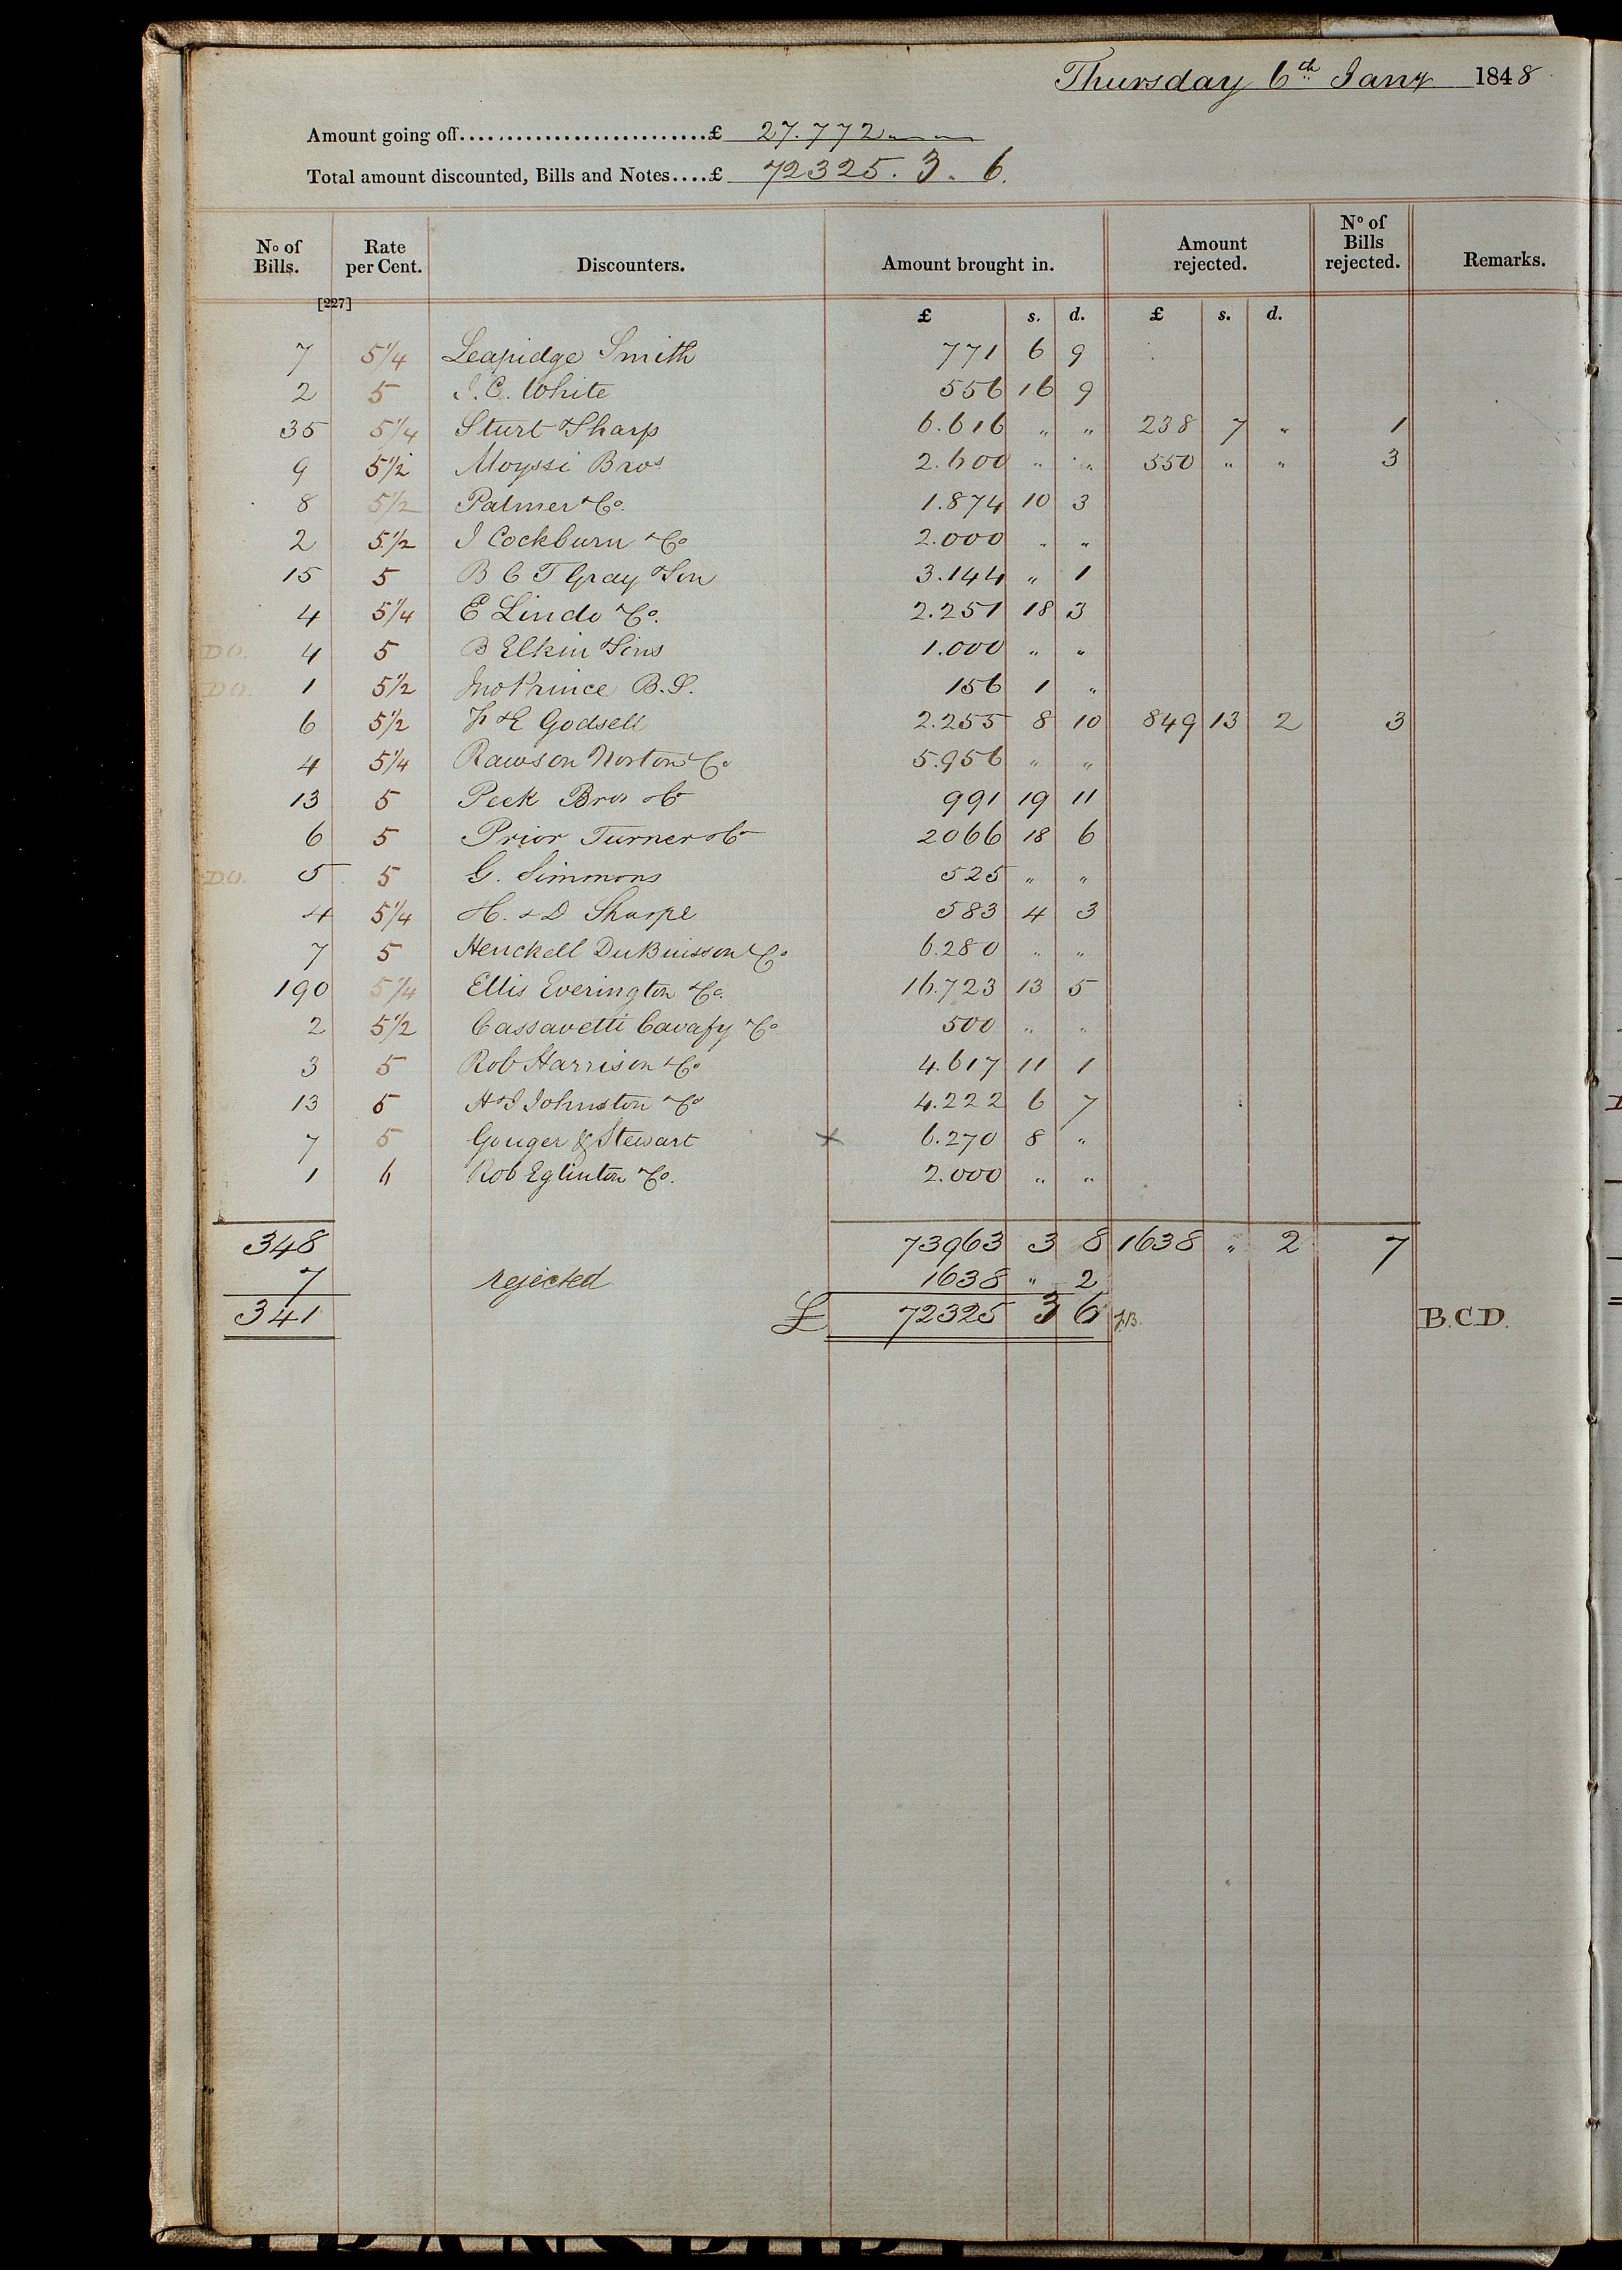 Thursday 6th Jany 1848
Amount going off.........................£ 27.772 " "
Total amount discounted, Bills and Notes....£ 72325. 3. 6.
No of Bills. Rate per Cent. Discounters. Amount brought in. Amount rejected. No of Bills rejected. Remarks.
[227]
£ s. d. £ s. d.
7 5 1/4 Leapidge Smith 771 6 9
2 5 J. C. White 556 16 9
35 5 1/4 Sturt & Sharp 6.616 " " 238 7 " 1
9 5 1/2 Moyssi Bros 2.600 " " 550 " " 3
8 5 1/2 Palmer & Co. 1.874 10 3
2 5 1/2 J Cockburn & Co 2.000 " "
15 5 B C T Gray & Son 3.144 " 1
4 5 1/4 E Lindo & Co. 2.251 18 3
DO. 4 5 B Elkin & Sons 1.000 " "
DO. 1 5 1/2 Jno Prince B.S. 156 1 "
6 5 1/2 & E Godsell 2.255 8 10 849 13 2 3
4 5 1/4 Rawson Norton & Co 5.956 " "
13 5 Peek Bros & Co 991 19 11
6 5 Prior Turner & Co 2066 18 6
DO. 5 5 G. Simmons 525 " "
4 5 1/4 H. & D Sharpe 583 4 3
7 5 Henckell DuBuisson & Co 6.280 " "
190 5 1/4 Ellis Everington & Co. 16.723 13 5
2 5 1/2 Cassavetti Cavafy & Co 500 " "
3 5 Rob Harrison & Co 4.617 11 1
13 5 H & J Johnston & Co 4.222 6 7
7 5 Gouger & Stewart x 6.270 8 "
1 6 Rob Eglinton & Co. 2.000 " "
348 73963 3 8 1638 " 2 7
7 rejected 1638 " 2
341 £ 72325 3 6 B.C.D.